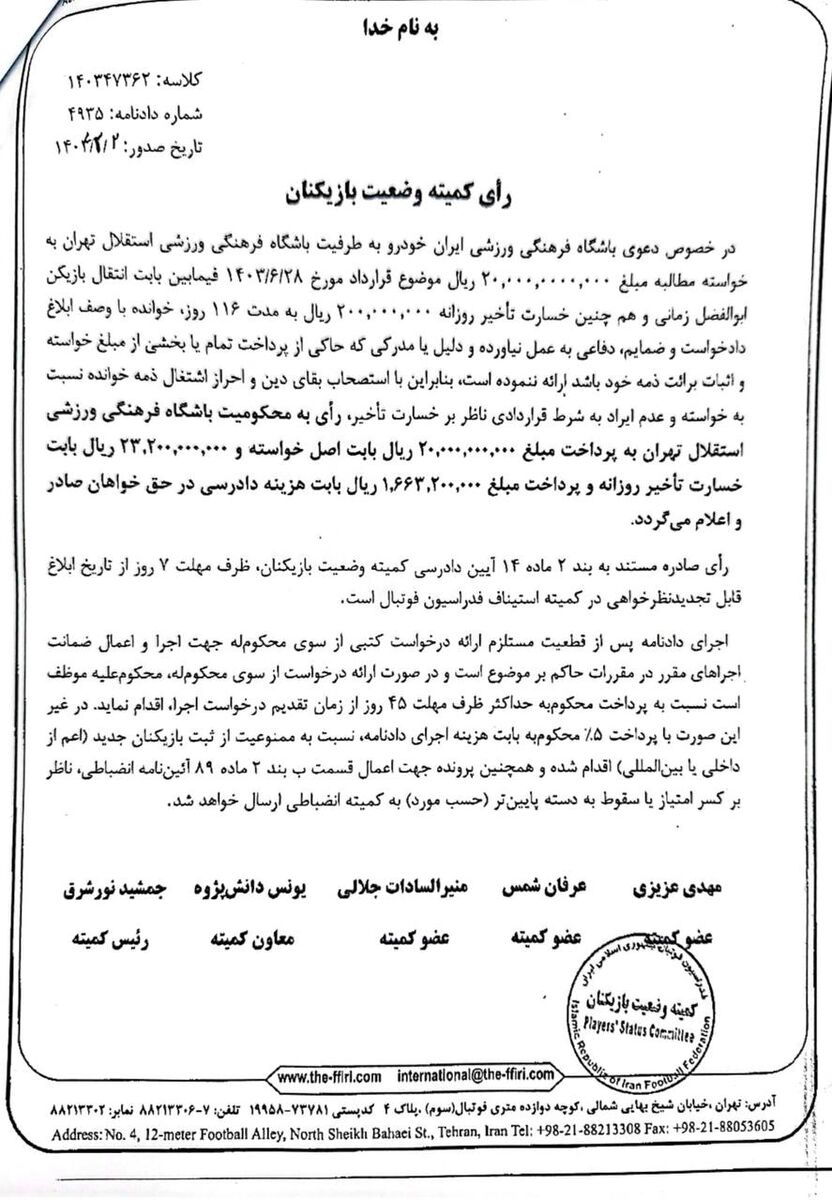 به نام خدا
کلاسه: ۱۴۰۳۴۷۳۶۲
شماره دادنامه: ۴۹۳۵
تاریخ صدور:
رأی کمیته وضعیت بازیکنان
در خصوص دعوی باشگاه فرهنگی ورزشی ایران خودرو به طرفیت باشگاه فرهنگی ورزشی استقلال تهران به
خواسته مطالبه مبلغ ۲۰,۰۰۰,۰۰۰۰,۰۰۰ ریال موضوع قرارداد مورخ ۱۴۰۳/۶/۲۸ فیمابین بابت انتقال بازیکن
ابوالفضل زمانی و هم چنین خسارت تأخیر روزانه ۲۰۰,۰۰۰,۰۰۰ ریال به مدت ۱۱۶ روز، خوانده با وصف ابلاغ
دادخواست و ضمایم، دفاعی به عمل نیاورده و دلیل یا مدرکی که حاکی از پرداخت تمام یا بخشی از مبلغ خواسته
و اثبات برائت ذمه خود باشد ارائه ننموده است، بنابراین با استصحاب بقای دین و احراز اشتغال ذمه خوانده نسبت
به خواسته و عدم ایراد به شرط قراردادی ناظر بر خسارت تأخیر، رأی به محکومیت باشگاه فرهنگی ورزشی
استقلال تهران به پرداخت مبلغ ۲۰,۰۰۰,۰۰۰,۰۰۰ ریال بابت اصل خواسته و ۲۳,۲۰۰,۰۰۰,۰۰۰ ریال بابت
خسارت تأخیر روزانه و پرداخت مبلغ ۱,۶۶۳,۲۰۰,۰۰۰ ریال بابت هزینه دادرسی در حق خواهان صادر
و اعلام می‌گردد.
رأی صادره مستند به بند ۲ ماده ۱۴ آیین دادرسی کمیته وضعیت بازیکنان، ظرف مهلت ۷ روز از تاریخ ابلاغ
قابل تجدیدنظرخواهی در کمیته استیناف فدراسیون فوتبال است.
اجرای دادنامه پس از قطعیت مستلزم ارائه درخواست کتبی از سوی محکوم‌له جهت اجرا و اعمال ضمانت
اجراهای مقرر در مقررات حاکم بر موضوع است و در صورت ارائه درخواست از سوی محکوم‌له، محکوم‌علیه موظف
است نسبت به پرداخت محکوم‌به حداکثر ظرف مهلت ۴۵ روز از زمان تقدیم درخواست اجرا، اقدام نماید. در غیر
این صورت با پرداخت ۵٪ محکوم‌به بابت هزینه اجرای دادنامه، نسبت به ممنوعیت از ثبت بازیکنان جدید (اعم از
داخلی یا بین‌المللی) اقدام شده و همچنین پرونده جهت اعمال قسمت ب بند ۲ ماده ۸۹ آئین‌نامه انضباطی، ناظر
بر کسر امتیاز یا سقوط به دسته پایین‌تر (حسب مورد) به کمیته انضباطی ارسال خواهد شد.
مهدی عزیزی عرفان شمس منیرالسادات جلالی یونس دانش‌پژوه جمشید نورشرق
عضو کمیته عضو کمیته عضو کمیته معاون کمیته رئیس کمیته
فدراسیون فوتبال جمهوری اسلامی ایران
کمیته وضعیت بازیکنان
Players' Status Committee
Islamic Republic of Iran Football Federation
www.the-ffiri.com international@the-ffiri.com
آدرس: تهران ،خیابان شیخ بهایی شمالی ،کوچه دوازده متری فوتبال(سوم) ،پلاک ۴ کدپستی ۷۳۷۸۱-۱۹۹۵۸ تلفن: ۷-۸۸۲۱۳۳۰۶ نمابر: ۸۸۲۱۳۳۰۲
Address: No. 4, 12-meter Football Alley, North Sheikh Bahaei St., Tehran, Iran Tel: +98-21-88213308 Fax: +98-21-88053605